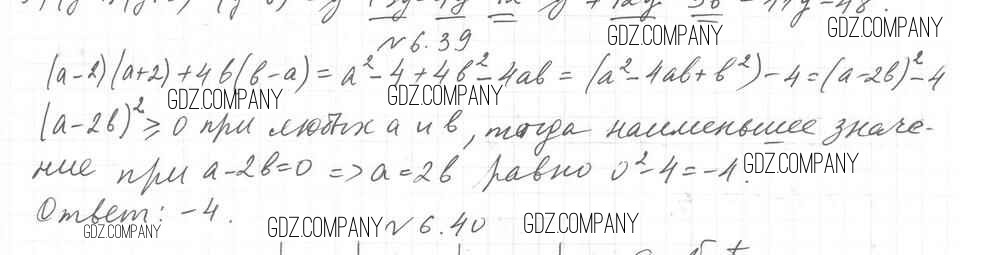 GDZ.COMPANY GDZ.COMPANY
№ 6.39
(a-2)(a+2)+4b(b-a) = a²-4+4b²-4ab = (a²-4ab+b²)-4=(a-2b)²-4
GDZ.COMPANY GDZ.COMPANY
(a-2b)² ≥ 0 при любых a и b, тогда наименьшее значе-
ние при a-2b=0 => a=2b равно 0²-4=-4. GDZ.COMPANY
Ответ: -4.
GDZ.COMPANY GDZ.COMPANY № 6.40 GDZ.COMPANY